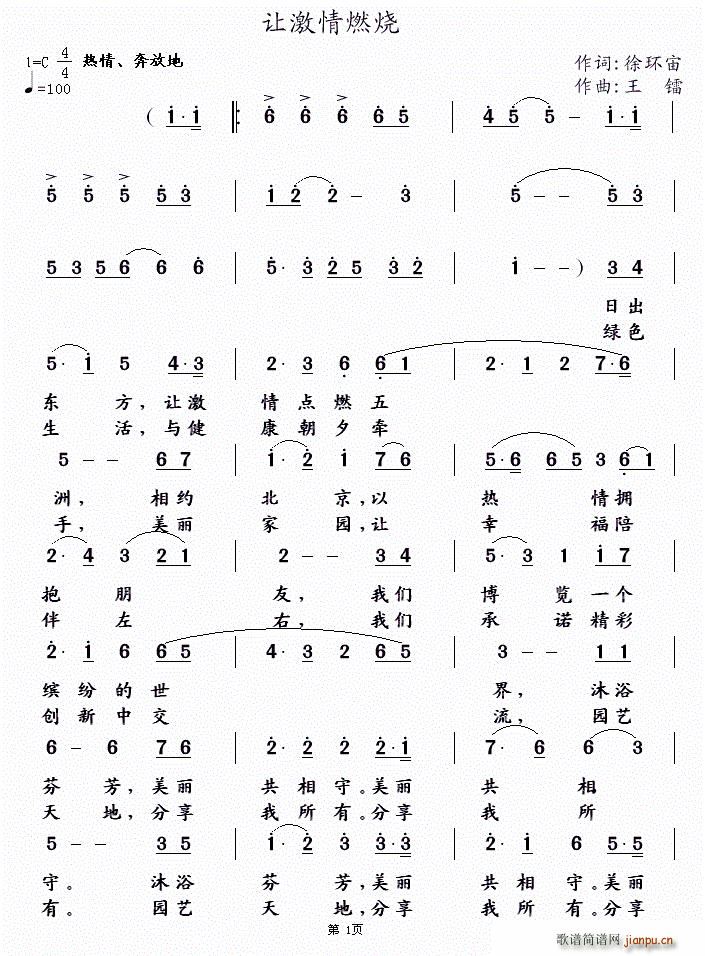 让激情燃烧
1=C 4/4 热情、奔放地
♩=100
作词:徐环宙
作曲:王 镭
( i·i 6 6 6 6 5 4 5 5 – i·i
5 5 5 5 3 i 2 2 – 3 5 – – 5 3
5 3 5 6 6 6 5· 3 2 5 3 2 i – – ) 3 4
日出
绿色
5· i 5 4·3 2· 3 6 6 1 2· 1 2 7·6
东 方,让激 情点燃五
生 活,与健 康朝夕牵
5 – – 6 7 i· 2 i 7 6 5·6 6 5 3 6 1
洲, 相约 北 京,以 热 情拥
手, 美丽 家 园,让 幸 福陪
2· 4 3 2 1 2 – – 3 4 5· 3 1 i 7
抱 朋 友, 我们 博 览一个
伴 左 右, 我们 承 诺精彩
2· i 6 6 5 4· 3 2 6 5 3 – – 1 1
缤纷的世 界, 沐浴
创新中交 流, 园艺
6 – 6 7 6 2· 2 2 2·i 7· 6 6 3
芬 芳,美丽 共相守。美丽 共 相
天 地,分享 我所有。分享 我 所
5 – – 3 5 i· 2 3 3·3 2· i 6 5·5
守。 沐浴 芬 芳,美丽 共相守。美丽
有。 园艺 天 地,分享 我所有。分享
第 1页
歌谱简谱网 jianpu.cn